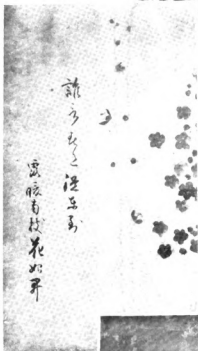 誰言春色従東到
露暖南枝花始開